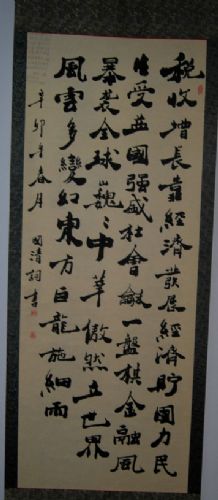 税收增長靠經濟發展經濟貯国力民
生受益國強盛社會一盤棋金融風
暴袭全球巍〻中華傲然立世界
風雲多變幻東方巨龍施細雨
辛卯年春月 国清詞書